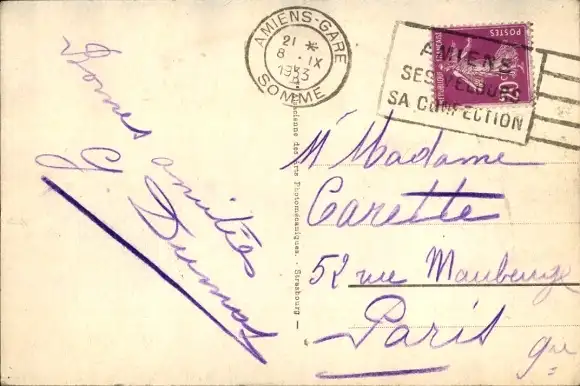 Bonnes amitiés
G Dumas
AMIENS-GARE
21 *
8 - IX
1933
SOMME
AMIENS
SES VELOURS
SA CONFECTION
POSTES
20c
des Arts Photomécaniques. - Strasbourg
Mr Madame
Carette
52 rue Maubeuge
Paris
9e